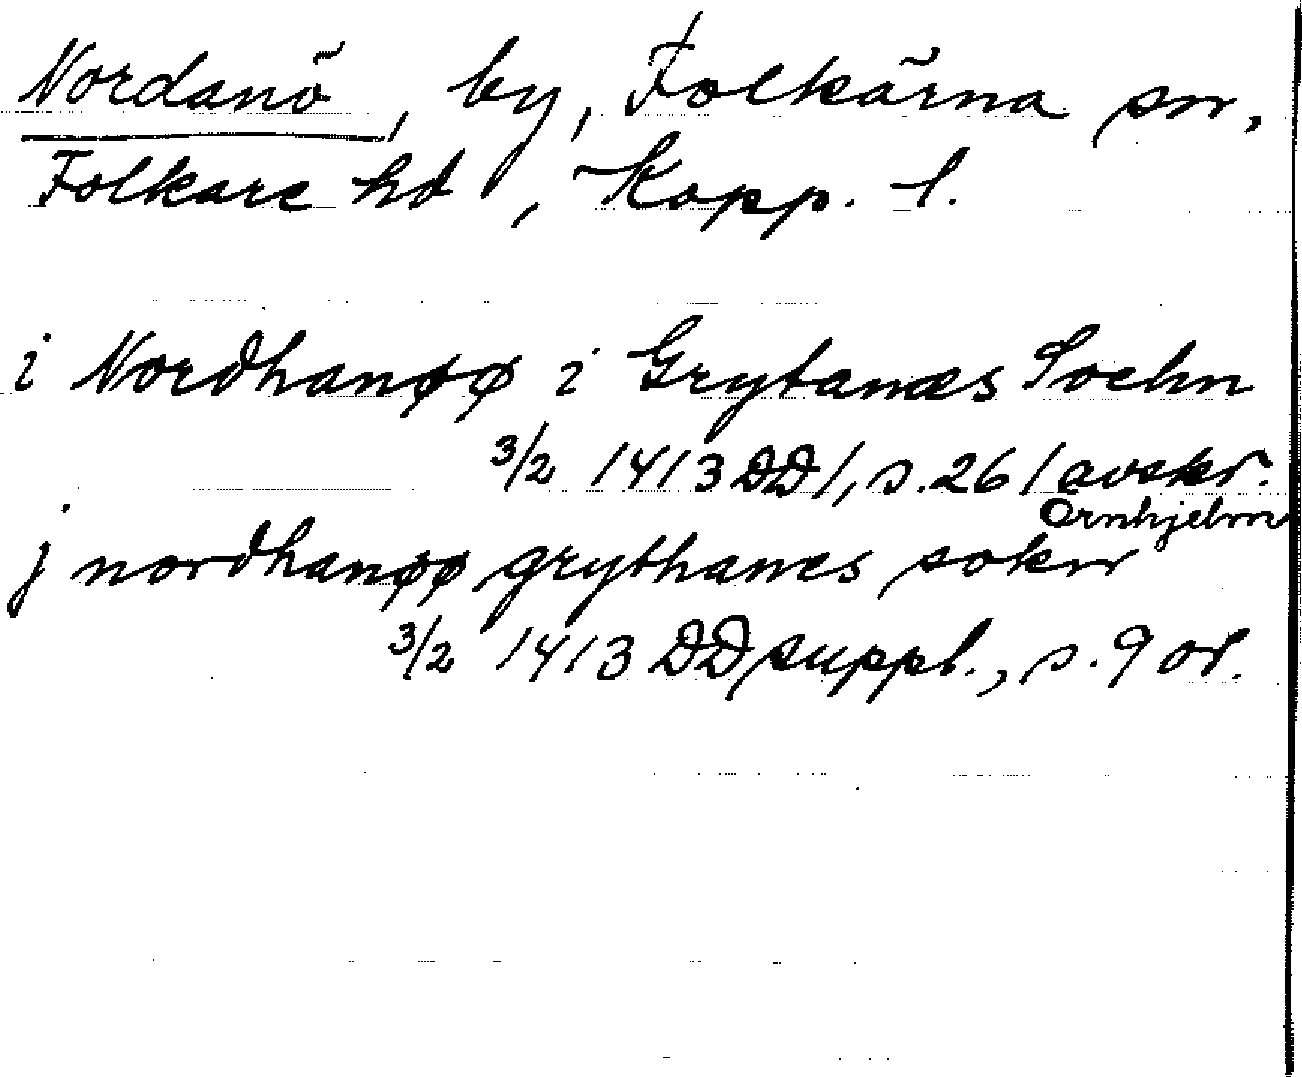 Nordanö, by, Folkärna sn,
Folkare hd, Kopp. l.
i Nordhanøø i Grytanæs Sochn
3/2 1413 DD 1, s. 261 avskr.
Örnhjelm
j nordhanøø grythanæs sokn
3/2 1413 DD suppl., s. 9 or.